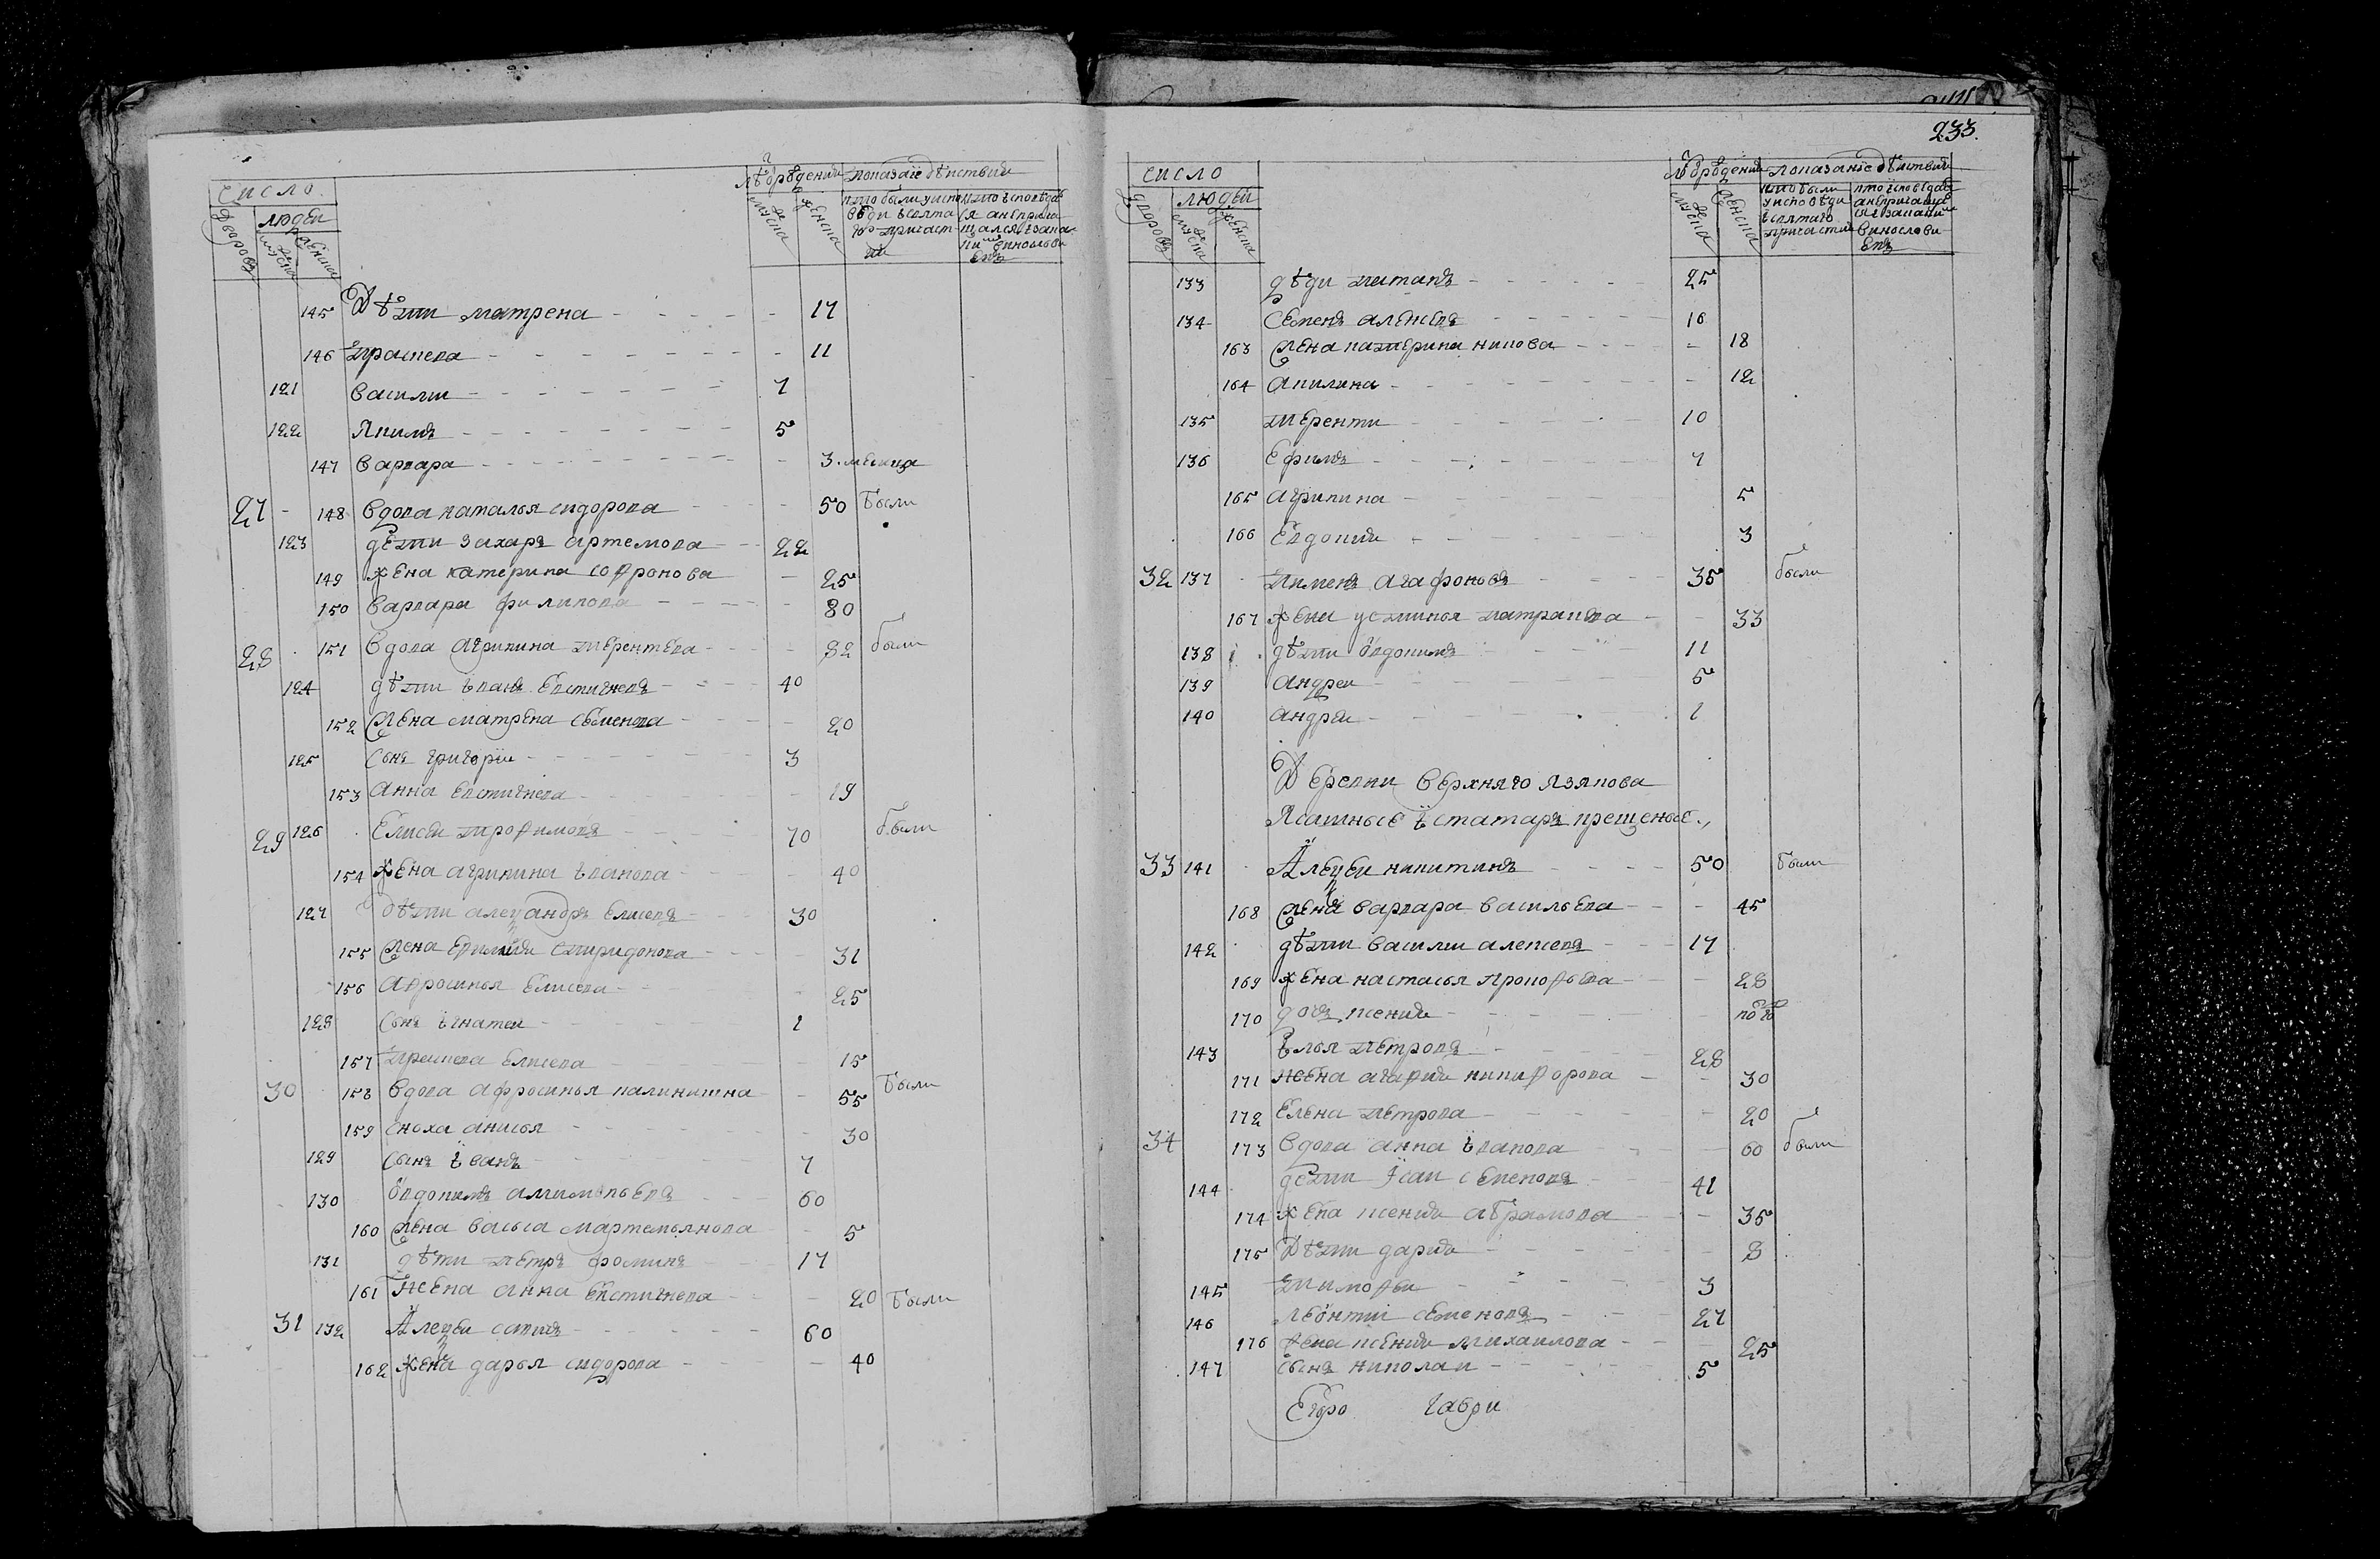 число
дворовъ
людей
мужеска
женска
лѣтъ рождения
мужеска
женска
показание дѣиствии
145 Дѣти матрена 17
146 прасковя 11
121 василии 7
122 Якимъ 5
147 варвара 3. месица
27 148 вдова наталья сидорова 50 были
123 дѣти захаръ артемова 22
149 жена катерина софронова 25
150 варвара филипова 80
28 151 вдова агрипина терентева 82 были
124 дѣти иванъ евстигневъ 40
152 жена матрена семенова 20
125 сынъ григории 3
153 анна евстигнева 19
29 126 Елисеи трофимовъ 70 были
154 жена агрипина иванова 40
127 дѣти александръ елисевъ 30
155 жена спиридонова 31
156 афросинья елисева 25
128 сынъ игнатеи 1
157 елисева 15
30 158 вдова афросинья калинишна 55 были
159 сноха анисья 30
129 сынъ иванъ 7
130 евдокимъ 60
160 жена васьса мартемьянова 5
131 дѣти петръ фоминъ 17
161 жена анна евстигнева 20 были
31 132 Алексѣи 60
162 жена дарья сидорова 40
233.
число
дворовъ
людей
мужеска
женска
лѣтъ рождения
мужеска
женска
показание дѣиствии
133 дѣти 25
134 семенъ алексѣевъ 16
163 жена катерина 18
164 акилина 12
135 терентии 10
136 ефимъ 7
165 агрипина 5
166 Евдокия 3
32 137 пименъ агафоновъ 35 были
167 жена устинья 33
138 дѣти евдокимъ 11
139 андреи 5
140 андреи 1
Деревни верхняго Язякова
Ясашные ис татаръ крещеные.,
33 141 Алексѣи никитинъ 50 были
168 жена варвара васильева 45
142 дѣти василии алексевъ 17
169 жена настасья прокофьева 28
170 дочь ксения
143 илья петровъ 28
171 жена агафия никифорова 30
172 елена петрова 20
34 173 вдова анна иванова 60 были
144 дѣти исаи семеновъ 41
174 жена ксения абрамова 35
175 Дѣти дария 8
145 тимофеи 3
146 леонтии семеновъ 27
176 жена ксения михаилова 25
147 сынъ николаи 5